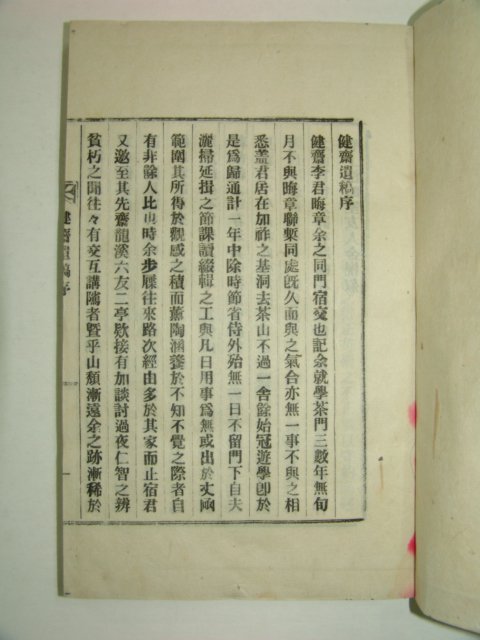 健齋遺稿序
健齋李君晦章余之同門宿交也記余就學茶門三數年無旬
月不與晦章聯槧同處旣久而與之氣合亦無一事不與之相
悉盖君居在加祚之基洞去茶山不過一舍餘始冠遊學卽於
是爲歸通計一年中除時節省侍外殆無一日不留門下自夫
灑掃延揖之節課讀綴輯之工與凡日用事爲無或出於丈凾
範圍其所得於觀感之積而薰陶涵養於不知不覺之際者自
有非餘人比也時余步屧往來路次經由多於其家而止宿君
又邀至其先齋龍溪六友二亭欵接有加談討過夜仁智之辨
貧朽之聞往々有交互講隲者曁乎山頹漸遠余之跡漸稀於
健齋遺稿序
一